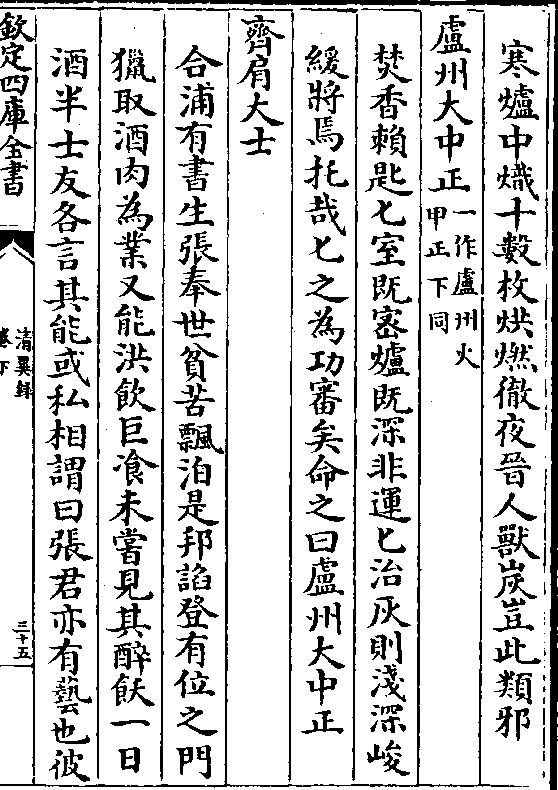 寒爐中熾十數枚烘燃徹夜晉人獸炭豈此類邪
盧州大中正一作盧州火甲正下同
焚香賴匙匕室既密爐既深非運匕治灰則淺深峻
緩將焉托哉匕之為功審矣命之曰盧州大中正
齊肩大士
合浦有書生張奉世貧苦飄泊是邦諂登有位之門
獵取酒肉為業又能洪飲巨飡未嘗見其醉飫一日
酒半士友各言其能或私相謂曰張君亦有藝也彼
欽定四庫全書
清異錄
卷下
三十五